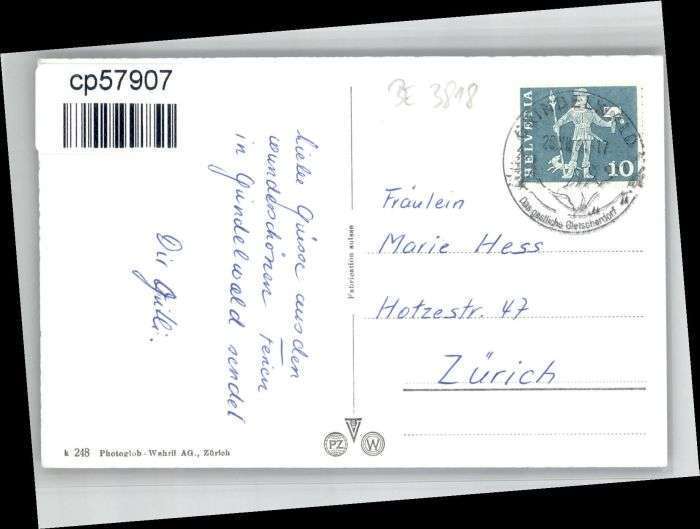 cp57907
BE 3818
HELVETIA
10
GRINDELWALD
Das gastliche Gletscherdorf
Liebe Grüsse aus den
wunderschönen Ferien
in Grindelwald sendet
Dir
Fräulein
Marie Hess
Hotzestr. 47
Zürich
Fabrication suisse
PZ
W
k 248 Photoglob-Wehrli AG., Zürich